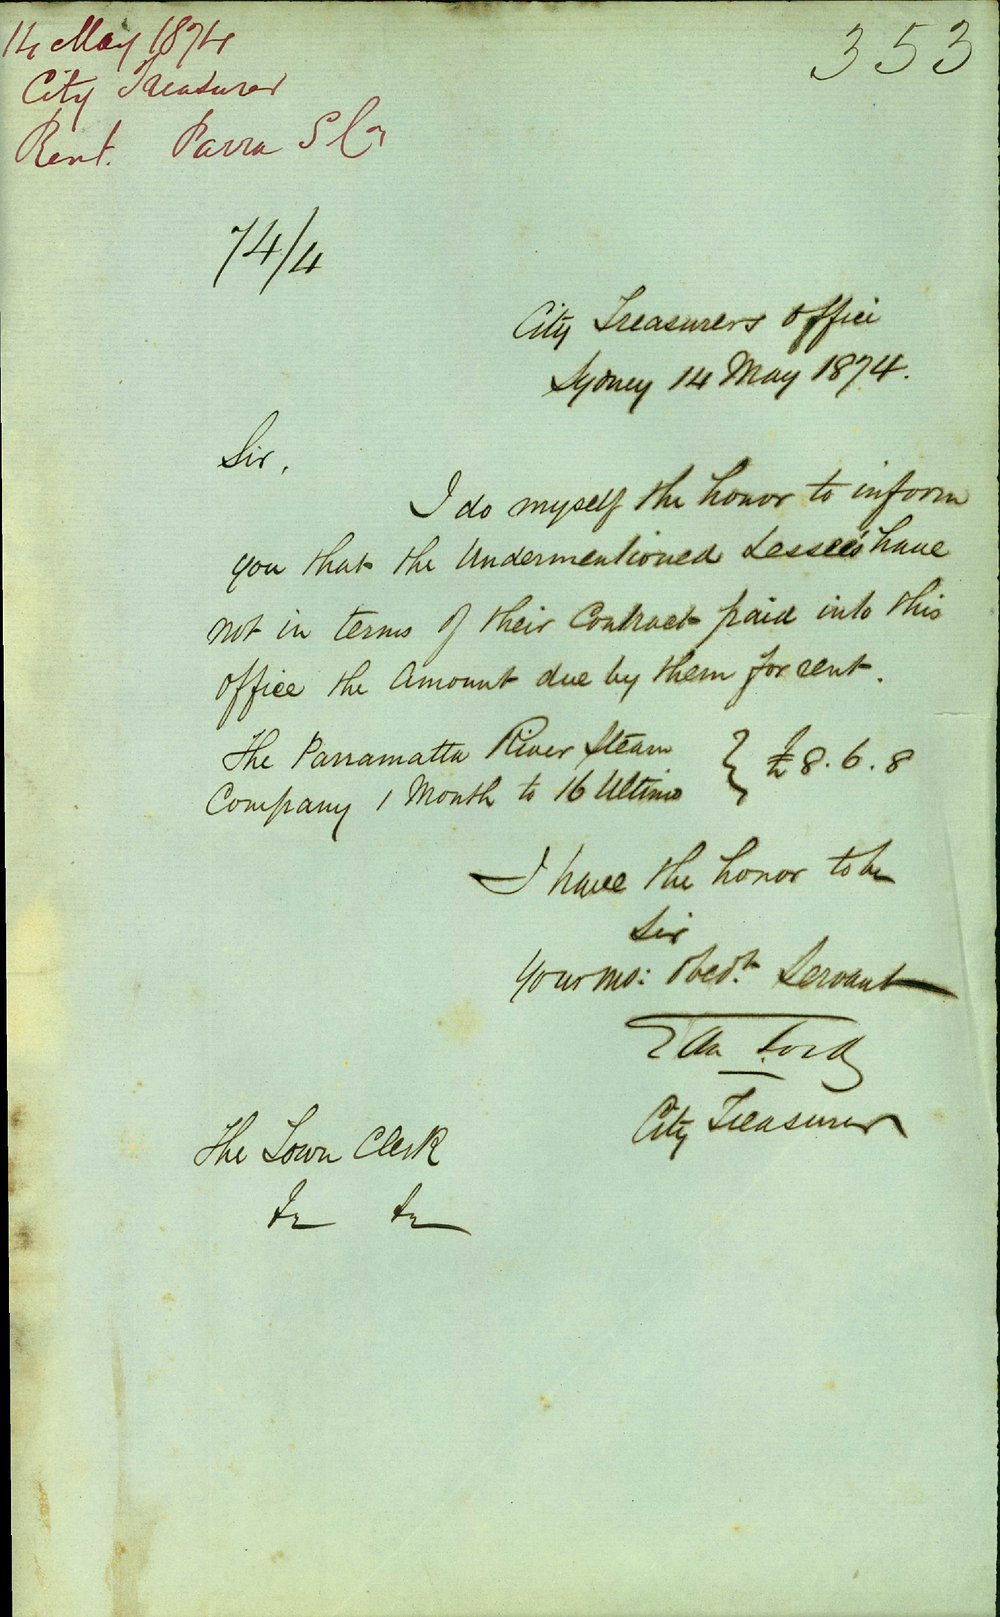 14 May 1874
City Treasurer
Rent. Parra S Co
353
74/4
City Treasurers Office
Sydney 14 May 1874.
Sir,
I do myself the honor to inform
you that the Undermentioned Lessee's have
not in terms of their Contract paid into this
office the Amount due by them for rent.
The Parramatta River Steam
Company 1 Month to 16 Ultimo } £8.6.8
I have the honor to be
Sir
Your mo: obedt. Servant
Lord
City Treasurer
The Town Clerk